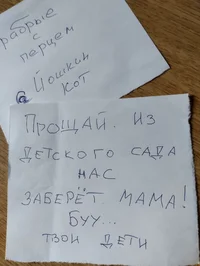 храбрые
с
перцем
Йошкин
кот
Прощай. Из
детского сада
нас
заберёт мама!
Буу...
твои дети